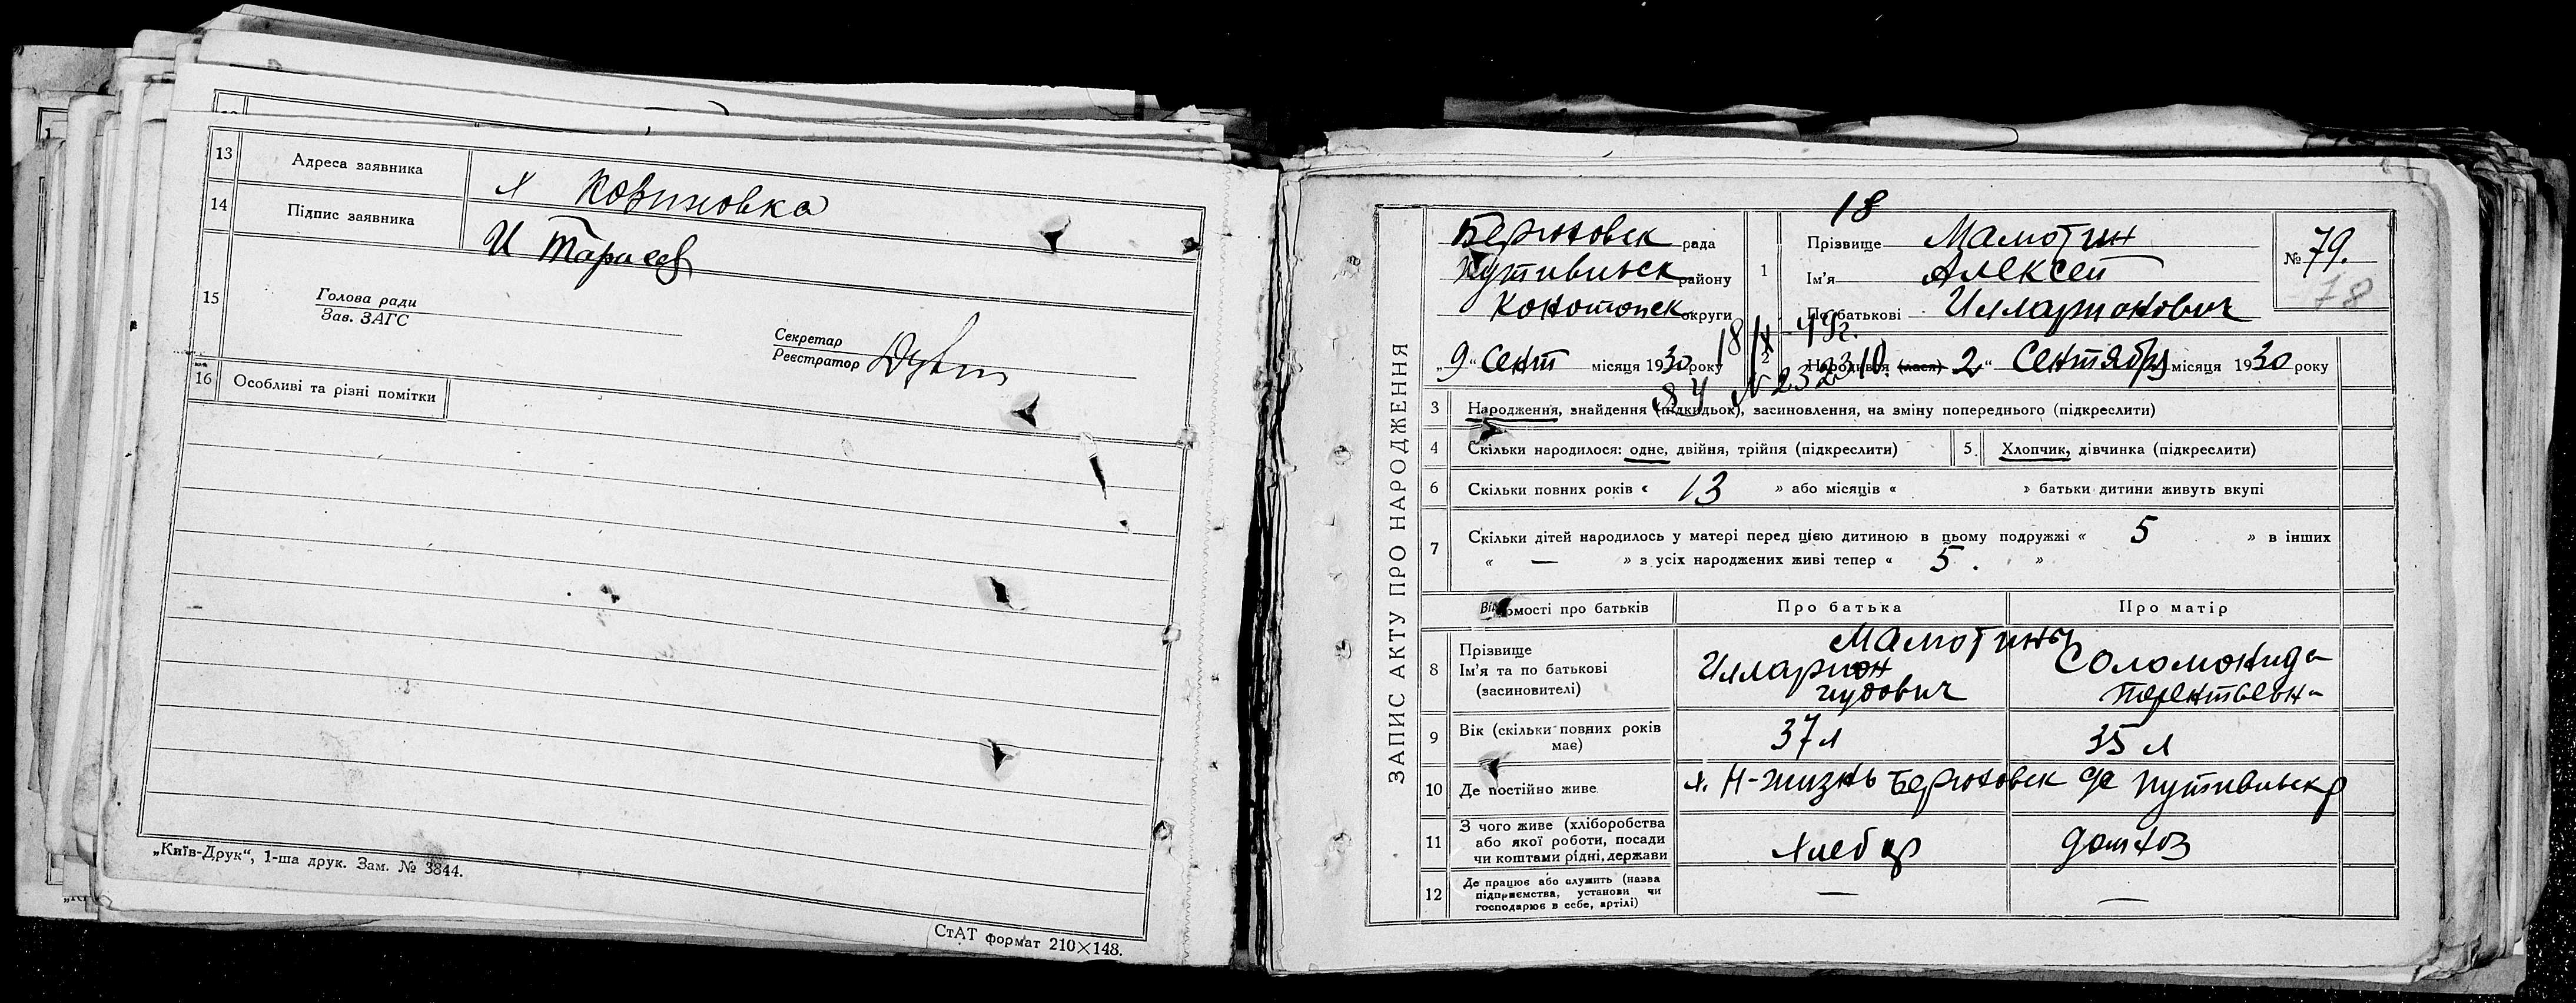 13 Адреса заявника х Ковиновка
14 Підпис заявника И Тарасов
15 Голова ради
Зав. ЗАГС
Секретар
Реєстратор
16 Особливі та різні помітки
„Київ-Друк“, 1-ша друк. Зам. № 3844.
СтАТ формат 210×148.
ЗАПИС АКТУ ПРО НАРОДЖЕННЯ
18
Берюховек рада
Путивльск району
Конотопск округи
1 Прізвище Мамотин
Ім'я Алексей
По батькові Илларионович
№ 79.
78
18/X-49г.
„9“ Сент місяця 1930 року
2 Народився (лася) „2“ Сентября місяця 1930 року
3 Народження, знайдення (підкидьок), засиновлення, на зміну попереднього (підкреслити)
4 Скільки народилося: одне, двійня, трійня (підкреслити)
5. Хлопчик, дівчинка (підкреслити)
6 Скільки повних років « 13 » або місяців « » батьки дитини живуть вкупі
7 Скільки дітей народилось у матері перед цією дитиною в цьому подружжі « 5 » в інших
« — » з усіх народжених живі тепер « 5. »
Відомості про батьків Про батька Про матір
8 Прізвище
Ім'я та по батькові
(засиновителі)
Мамотины
Илларион
Соломонида
Терентьевн
9 Вік (скільки повних років
має)
37 л
35 л
10 Де постійно живе
х. Н-жизнь Берюховек с/с Путивльск р
11 З чого живе (хліборобства
або якої роботи, посади
чи коштами рідні, держави
Хлебор
домхоз
12 Де працює або служить (назва
підприємства, установи чи
господарює в себе, артілі)
—
—